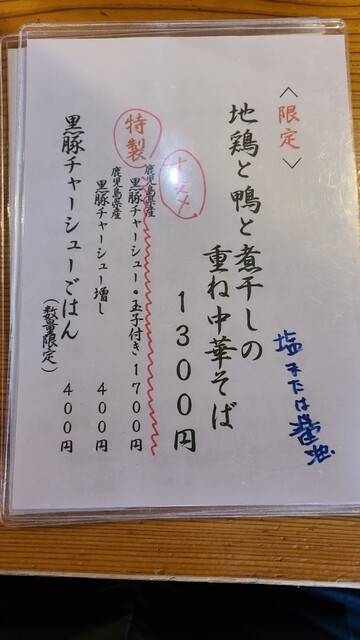 〈限定〉
地鶏と鴨と煮干しの
重ね中華そば
1300円
塩または醤油
オススメ
特製
鹿児島県産
黒豚チャーシュー・玉子付き1700円
鹿児島県産
黒豚チャーシュー増し 400円
黒豚チャーシューごはん 400円
(数量限定)